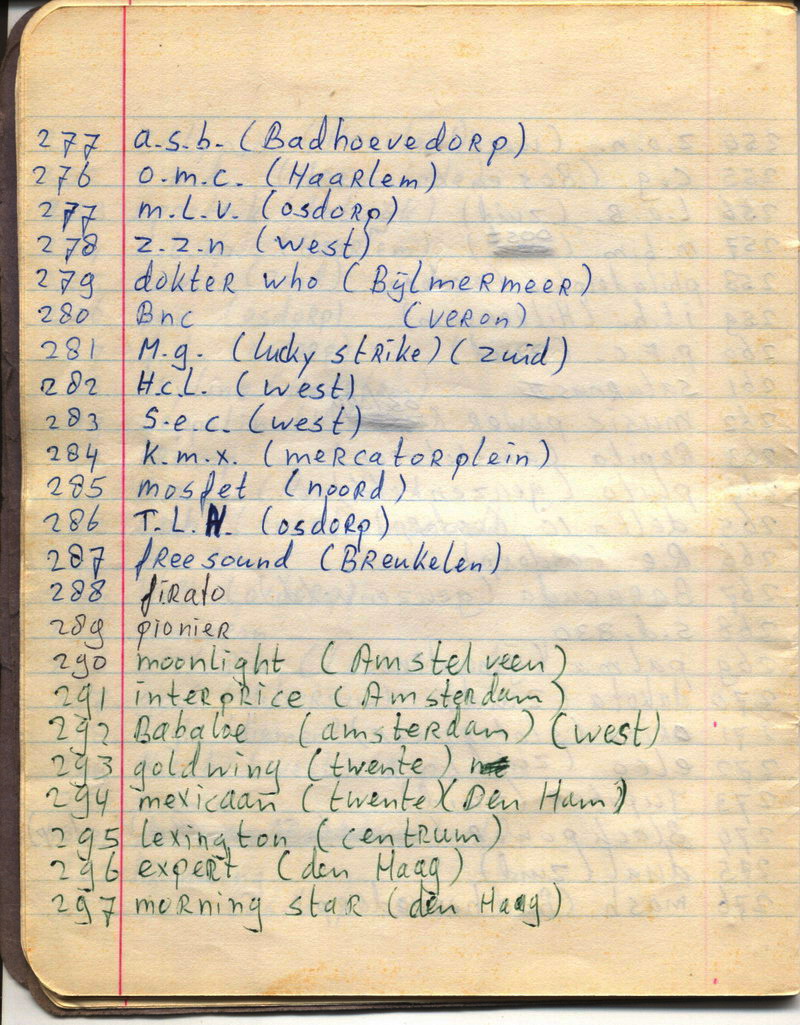 277 a.s.b. (BadhoevedoRp)
276 o.m.c. (HaaRlem)
277 m.L.V. (osdoRp)
278 z.z.n (west)
279 dokteR who (BijlmeRmeeR)
280 Bnc (veRon)
281 M.g. (lucky stRike) (zuid)
282 H.c.L. (west)
283 S.e.c. (west)
284 K.m.x. (meRcatoRplein)
285 mosfet (nooRd)
286 T.L.N. (osdoRp)
287 free sound (BReukelen)
288 fiRato
289 pionieR
290 moonlight (Amstelveen)
291 inteRpRice (AmsteRdam)
292 Babaloe (amsteRdam) (west)
293 goldwing (twente)
294 mexicaan (twente) (Den Ham)
295 lexington (centRum)
296 expeRt (den Haag)
297 moRning staR (den Haag)